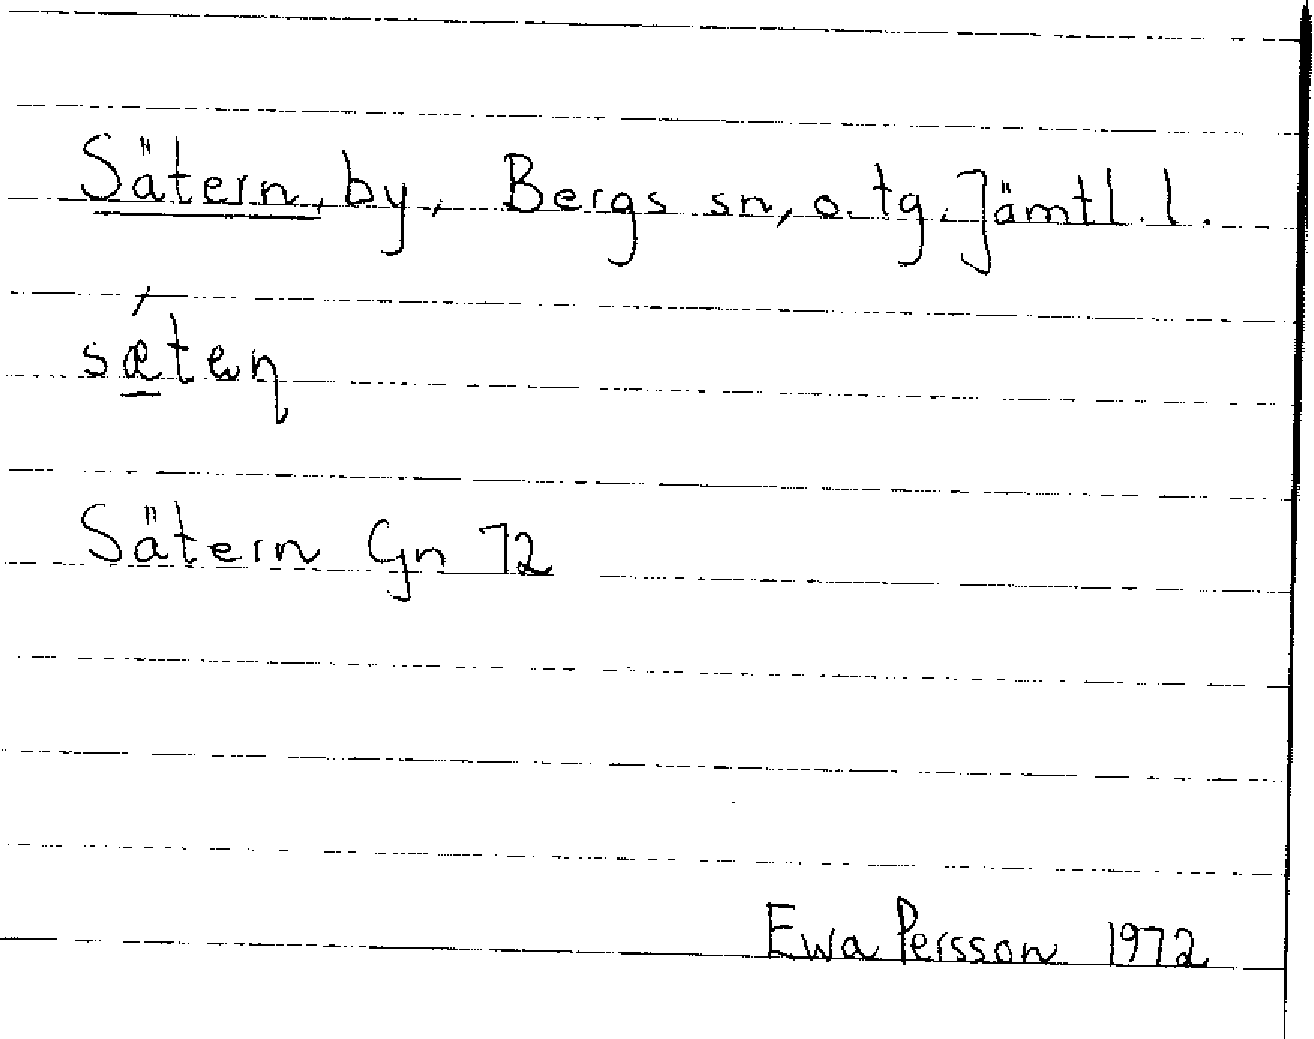 Sätern, by, Bergs sn, o. tg. Jämtl. l.
sǽ̱teɳ
Sätern Gn 72
Ewa Persson 1972